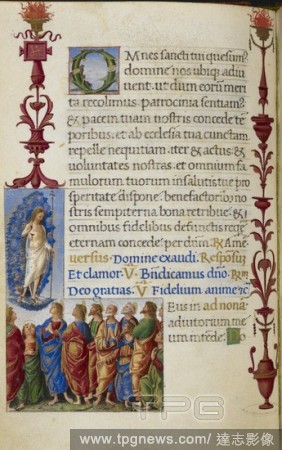 OMnes sancti tui quesumus
domine nos ubiq; adiu
uent. ut dum eorū meri
ta recolimus patrocinia sentiam9
& pacem tuam nostris concede tē
poribus. et ab ecclesia tua cunctam
repelle nequitiam. iter & actus &
voluntates nostras. et omnium fa
mulorum tuorum in salutis tue pro
speritate dispone benefactorib9 no
stris sempiterna bona retribue. & 
omnibus fidelibus defunctis requiē
eternam concede. per dñm. R Amē
Versus. Domine exaudi. Responsus
Et clamor. V Bñdicamus dño. R
Deo gratias. V Fidelium anime
ad nonā
Eus in
adiutorium me
um intēde.
TPG
www.tpgnews.com / 達志影像